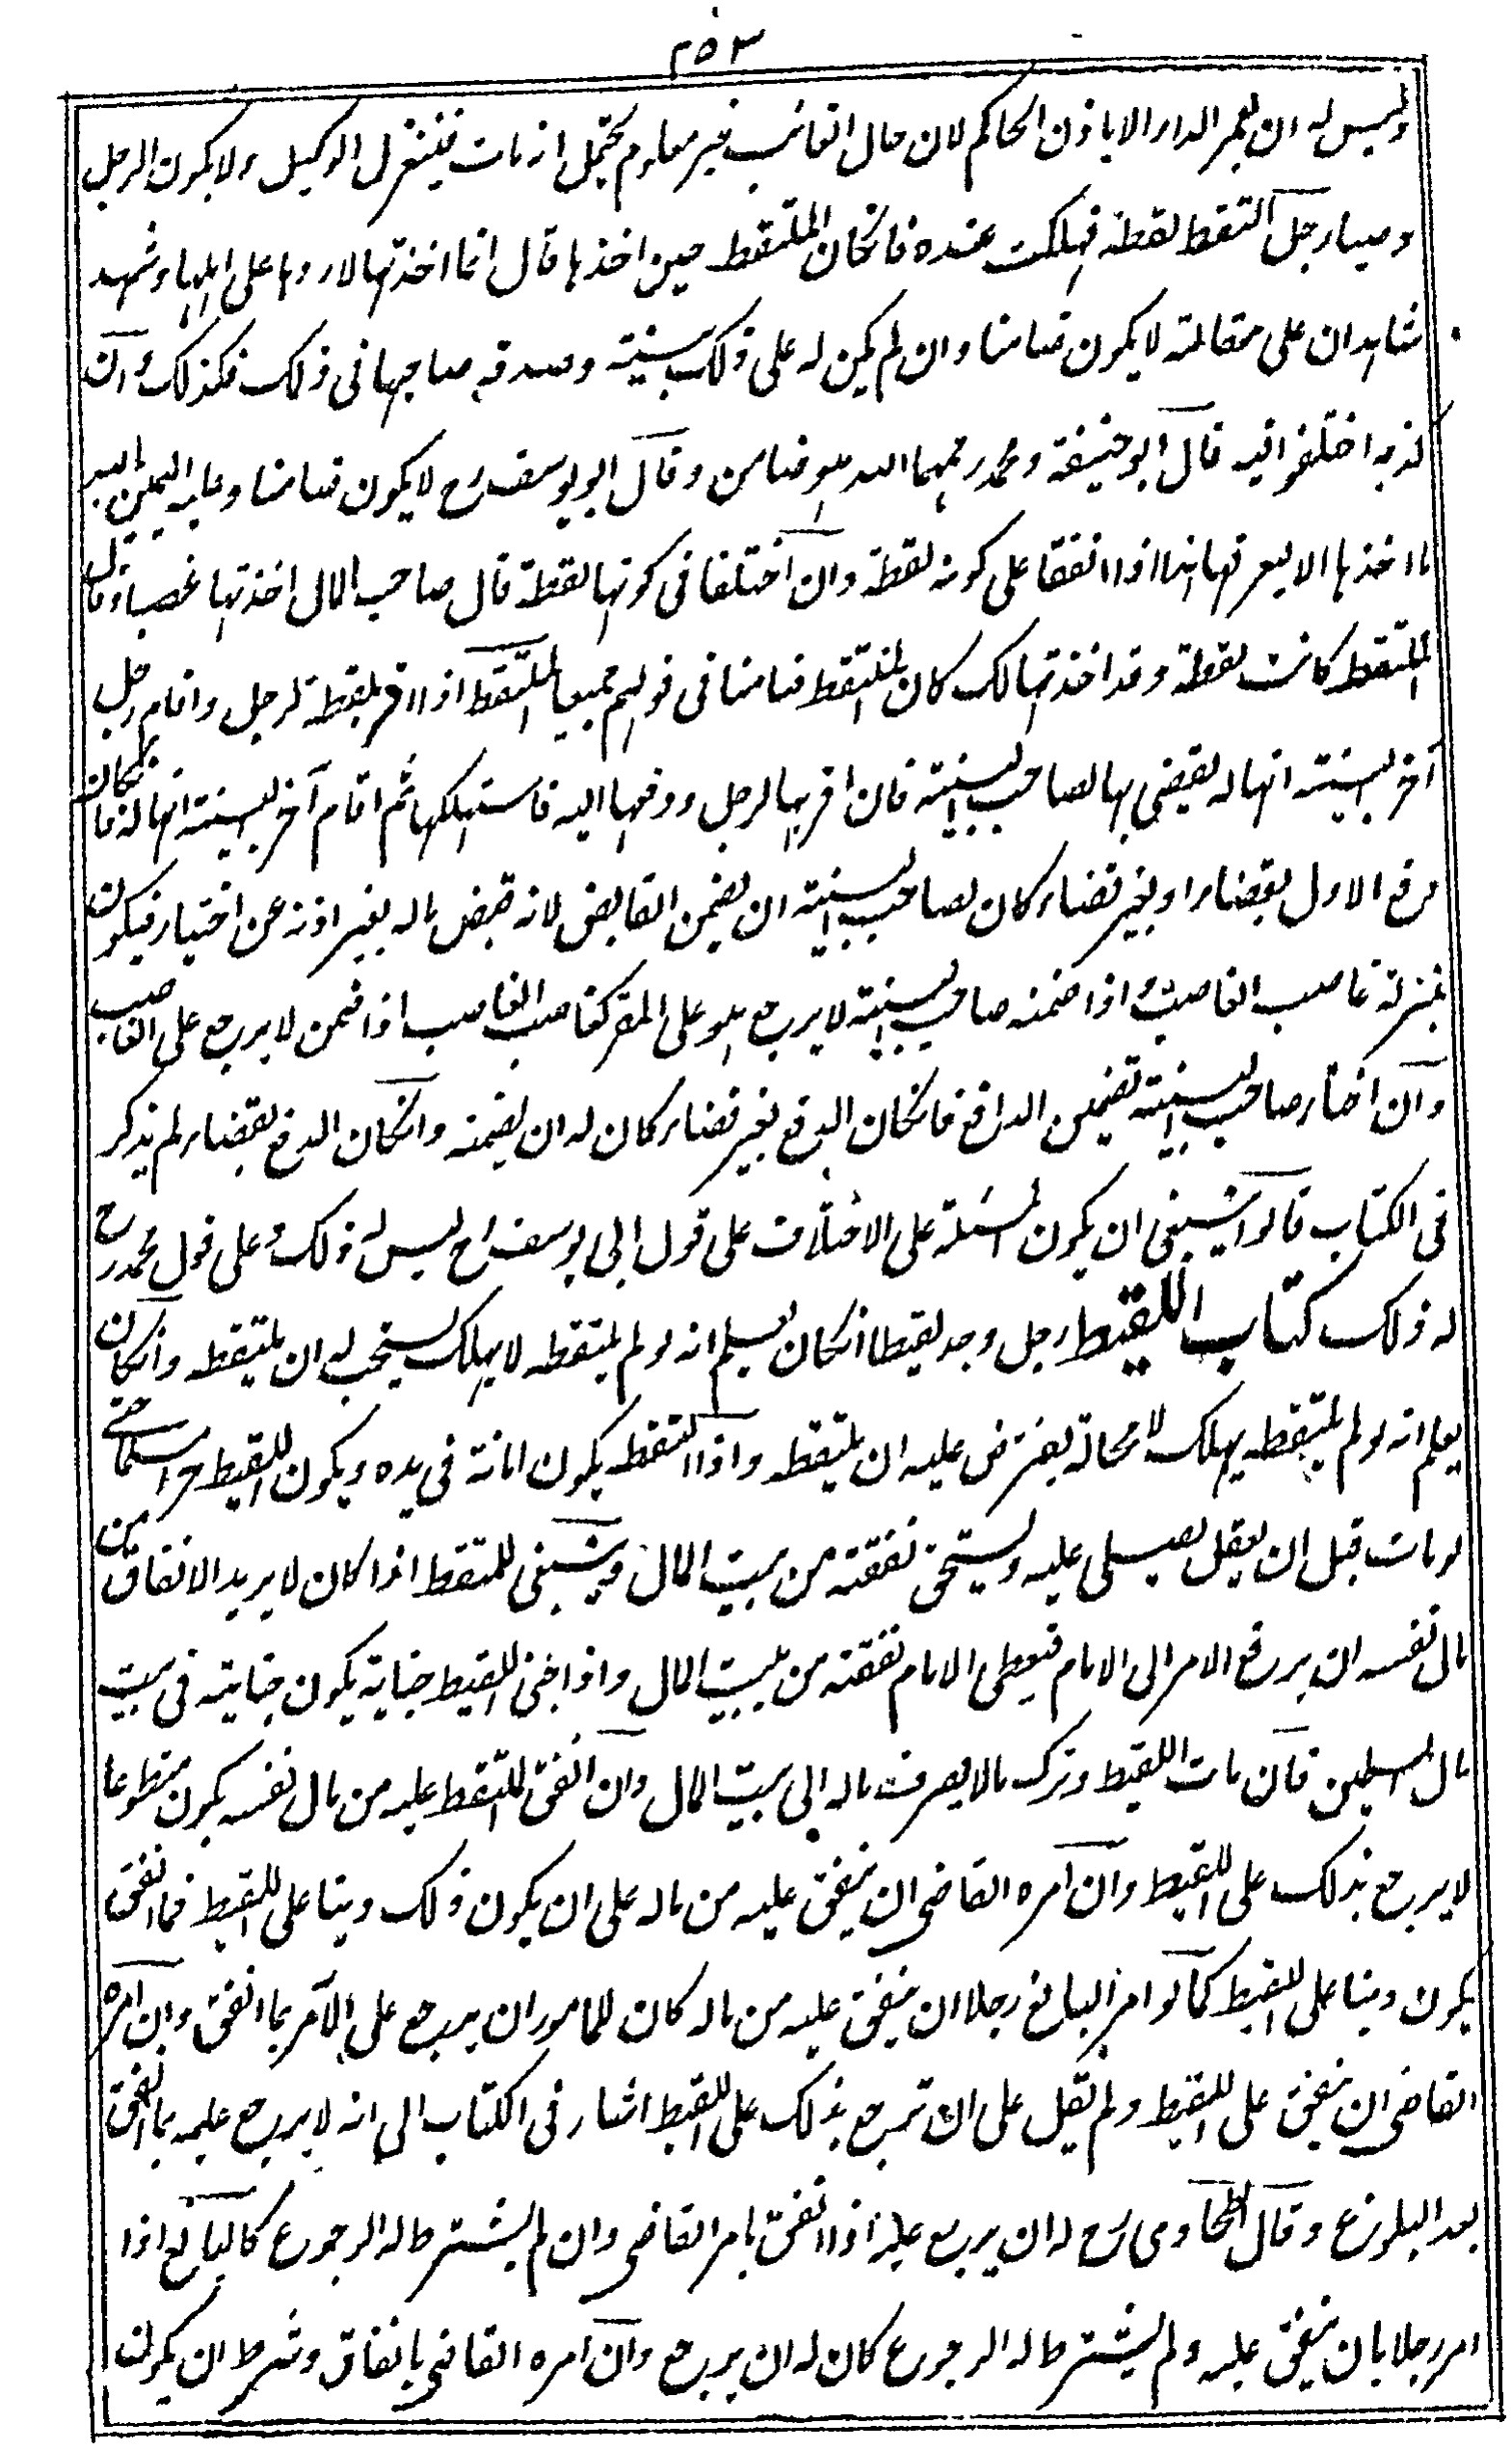 ٢٥٣
وليس له ان يعمر الدار الا باذن الحاكم لان حال الغائب غير معلوم يحتمل انه مات فينعزل الوكيل ولا يكون الرجل
وصيا رجل التقط لقطة فهلكت عنده فانكان الملتقط حين اخذها قال انما اخذتها لاردها على اهلها وشهد
شاهدان على مقالته لا يكون ضامنا وان لم يكن له على ذلك بينة وصدقه صاحبها فى ذلك فكذلك وان
كذبه اختلفوا فيه قال ابو حنيفة ومحمد رحمهما الله هو ضامن وقال ابو يوسف رح لا يكون ضامنا وعليه اليمين بالله
ما اخذها الا ليعرفها هذا اذا اتفقا على كونه لقطة وان اختلفا فى كونها لقطة قال صاحب المال اخذتها غصبا وقال
الملتقط كانت لقطة وقد اخذتها لك كان الملتقط ضامنا فى قولهم جميعا الملتقط اذا اقر بلقطة لرجل واقام رجل
آخر البينة انها له يقضى بها لصاحب البينة فان اقر بها لرجل ودفعها اليه فاستهلكها ثم اقام آخر البينة انها له فانكان
دفع الاول بقضاء او بغير قضاء كان لصاحب البينة ان يضمن القابض لانه قبض ماله بغير اذنه عن اختيار فيكون
بمنزلة غاصب الغاصب واذا ضمنه صاحب البينة لا يرجع هو على المقر كغاصب الغاصب اذا ضمن لا يرجع على الغاصب
وان اختار صاحب البينة تضمين الدافع فانكان الدفع بغير قضاء كان له ان يضمنه وانكان الدفع بقضاء لم يذكر
فى الكتاب قالوا ينبغى ان يكون المسئلة على الاختلاف على قول ابى يوسف رح ليس له ذلك وعلى قول محمد رح
له ذلك كتاب اللقيط رجل وجد لقيطا انكان يعلم انه لو لم يلتقطه لا يهلك يستحب له ان يلتقطه وانكان
يعلم انه لو لم يلتقطه يهلك لا محالة يفترض عليه ان يلتقطه واذا التقطه يكون امانة فى يده ويكون اللقيط حرا مسلما حتى
لو مات قبل ان يعقل يصلى عليه ويستحق نفقته من بيت المال وينبغى للملتقط اذا كان لا يريد الانفاق من
مال نفسه ان يرفع الامر الى الامام فيعطى الامام نفقته من بيت المال واذا جنى اللقيط جناية يكون جنايته فى بيت
مال المسلمين فان مات اللقيط وترك مالا يصرف ماله الى بيت المال وان انفق الملتقط عليه من مال نفسه يكون متطوعا
لا يرجع بذلك على اللقيط وان امره القاضى ان ينفق عليه من ماله على ان يكون ذلك دينا على اللقيط فما انفق
يكون دينا على اللقيط كما لو امر البالغ رجلا ان ينفق عليه من ماله كان للمامور ان يرجع على الآمر بما انفق وان امره
القاضى ان ينفق على اللقيط ولم يقل على ان ترجع بذلك على اللقيط اشار فى الكتاب الى انه لا يرجع عليه بما انفق
بعد البلوغ وقال الطحاوى رح له ان يرجع عليه اذا انفق بامر القاضى وان لم يشترط له الرجوع كالبالغ اذا
امر رجلا بان ينفق عليه ولم يشترط له الرجوع كان له ان يرجع وان امره القاضى بانفاق وشرط ان يكون